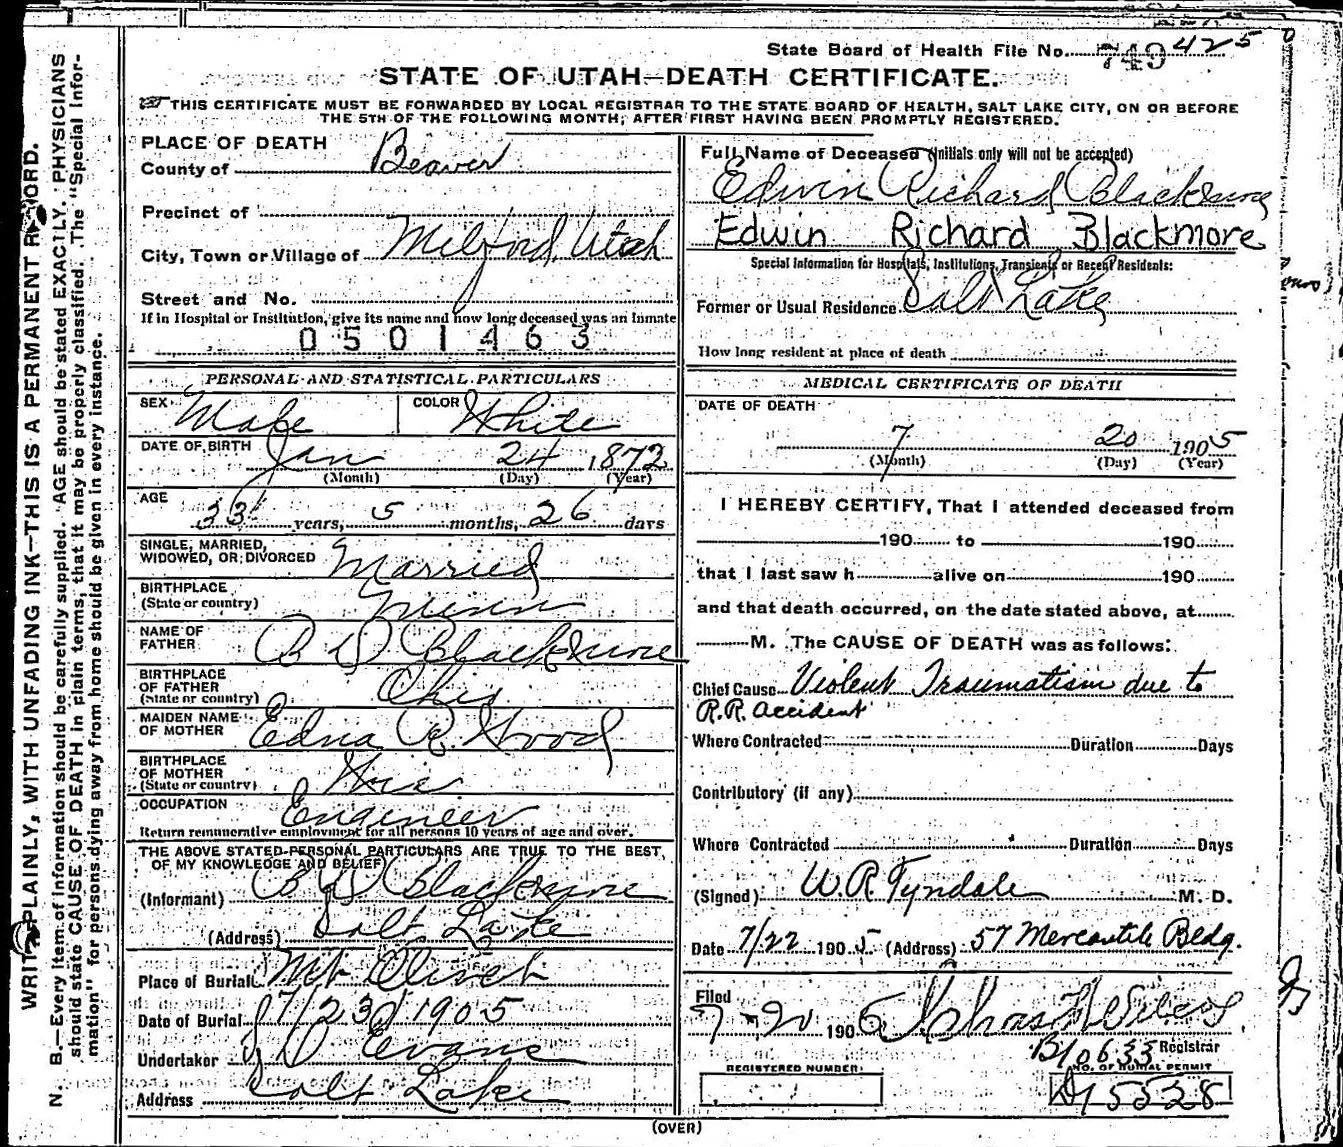 State Board of Health File No. 749 425
STATE OF UTAH—DEATH CERTIFICATE.
THIS CERTIFICATE MUST BE FORWARDED BY LOCAL REGISTRAR TO THE STATE BOARD OF HEALTH, SALT LAKE CITY, ON OR BEFORE
THE 5TH OF THE FOLLOWING MONTH, AFTER FIRST HAVING BEEN PROMPTLY REGISTERED.
WRITE PLAINLY, WITH UNFADING INK—THIS IS A PERMANENT RECORD.
N. B.—Every item of information should be carefully supplied. AGE should be stated EXACTLY. PHYSICIANS
should state CAUSE OF DEATH in plain terms, that it may be properly classified. The "Special Infor-
mation" for persons dying away from home should be given in every instance.
PLACE OF DEATH
County of Beaver
Precinct of
City, Town or Village of Milford, Utah
Street and No.
If in Hospital or Institution, give its name and how long deceased was an Inmate
0501463
PERSONAL AND STATISTICAL PARTICULARS
SEX Male COLOR White
DATE OF BIRTH Jan 24 1872
(Month) (Day) (Year)
AGE
33 years, 5 months, 26 days
SINGLE, MARRIED,
WIDOWED, OR DIVORCED Married
BIRTHPLACE
(State or country) Minn
NAME OF
FATHER B W Blackmore
BIRTHPLACE
OF FATHER
(State or country) Ohio
MAIDEN NAME
OF MOTHER Edna R. Wood
BIRTHPLACE
OF MOTHER
(State or country) Wis
OCCUPATION Engineer
Return remunerative employment for all persons 10 years of age and over.
THE ABOVE STATED PERSONAL PARTICULARS ARE TRUE TO THE BEST
OF MY KNOWLEDGE AND BELIEF
(Informant) B W Blackmore
(Address) Salt Lake
Place of Burial Mt Olivet
Date of Burial 7/23/1905
Undertaker Evans
Address Salt Lake
Full Name of Deceased (Initials only will not be accepted)
Edwin Richard Blackmore
Edwin Richard Blackmore
Special Information for Hospitals, Institutions, Transients or Recent Residents:
Former or Usual Residence Salt Lake
How long resident at place of death
MEDICAL CERTIFICATE OF DEATH
DATE OF DEATH
7 20 1905
(Month) (Day) (Year)
I HEREBY CERTIFY, That I attended deceased from
190 to 190
that I last saw h alive on 190
and that death occurred, on the date stated above, at
M. The CAUSE OF DEATH was as follows:
Chief Cause Violent Traumatism due to
R.R. accident
Where Contracted Duration Days
Contributory (if any)
Where Contracted Duration Days
(Signed) W.R. Tyndale M. D.
Date 7/22 1905 (Address) 57 Mercantile Bldg.
Filed
7-20 1906 Chas
B10633 Registrar
REGISTERED NUMBER NO. OF BURIAL PERMIT
15528
(OVER)